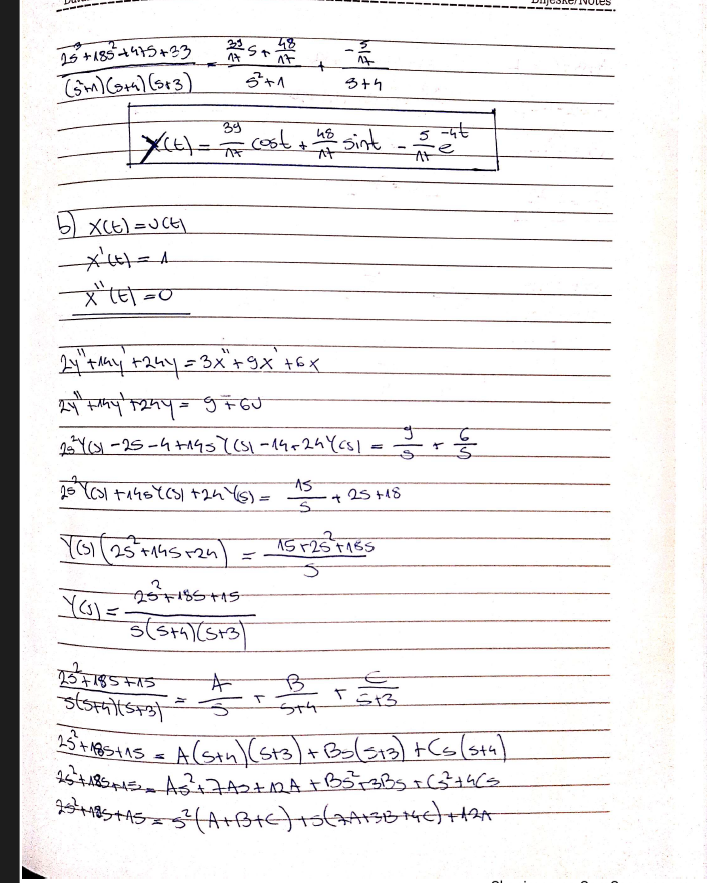 Bilješke/Notes
2s³+18s²+47s+33 / (s²+1)(s+4)(s+3) = (39/17 s + 48/17) / (s²+1) + (-5/17) / (s+4)
X(t) = 39/17 cost + 48/17 sint - 5/17 e^-4t
b) X(t)=U(t)
X'(t) = 1
X''(t) = 0
2y''+14y'+24y = 3x''+9x'+6x
2y''+14y'+24y = 9+6U
2s²Y(s) -2s -4 +14sY(s) -14+24Y(s) = 9/s + 6/s
2s²Y(s) +14sY(s) +24Y(s) = 15/s + 2s+18
Y(s)(2s²+14s+24) = 15+2s²+18s / s
Y(s) = 2s²+18s+15 / s(s+4)(s+3)
2s²+18s+15 / s(s+4)(s+3) = A/s + B/s+4 + C/s+3
2s²+18s+15 = A(s+4)(s+3) + Bs(s+3) + Cs(s+4)
2s²+18s+15 = As²+7As+12A + Bs²+3Bs + Cs²+4Cs
2s²+18s+15 = s²(A+B+C) + s(7A+3B+4C) + 12A